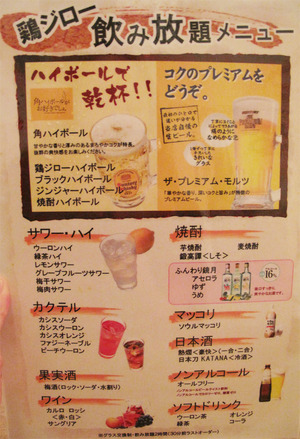 鶏ジロー 飲み放題メニュー
ハイボールで
乾杯!!
角ハイボールが
お好きでしょ。
角ハイボール
鶏ジローハイボール
ブラックハイボール
ジンジャーハイボール
焼酎ハイボール
コクのプレミアムを
どうぞ。
ザ・プレミアム・モルツ
サワー・ハイ
ウーロンハイ
緑茶ハイ
レモンサワー
グレープフルーツサワー
梅干サワー
梅肉サワー
焼酎
芋焼酎 麦焼酎
鍛高譚<しそ>
ふんわり鏡月
アセロラ
ゆず
うめ
16%
カクテル
カシスソーダ
カシスウーロン
カシスオレンジ
ファジーネーブル
ピーチウーロン
マッコリ
ソウルマッコリ
日本酒
熱燗<豪快>(一合・二合)
日本刀 KATANA<冷酒>
果実酒
梅酒(ロック・ソーダ・水割り)
ノンアルコール
オールフリー
ワイン
カルロ ロッシ
<赤・白>
サングリア
ソフトドリンク
ウーロン茶 オレンジ
緑茶 コーラ
※グラス交換制・飲み放題2時間(30分前ラストオーダー)